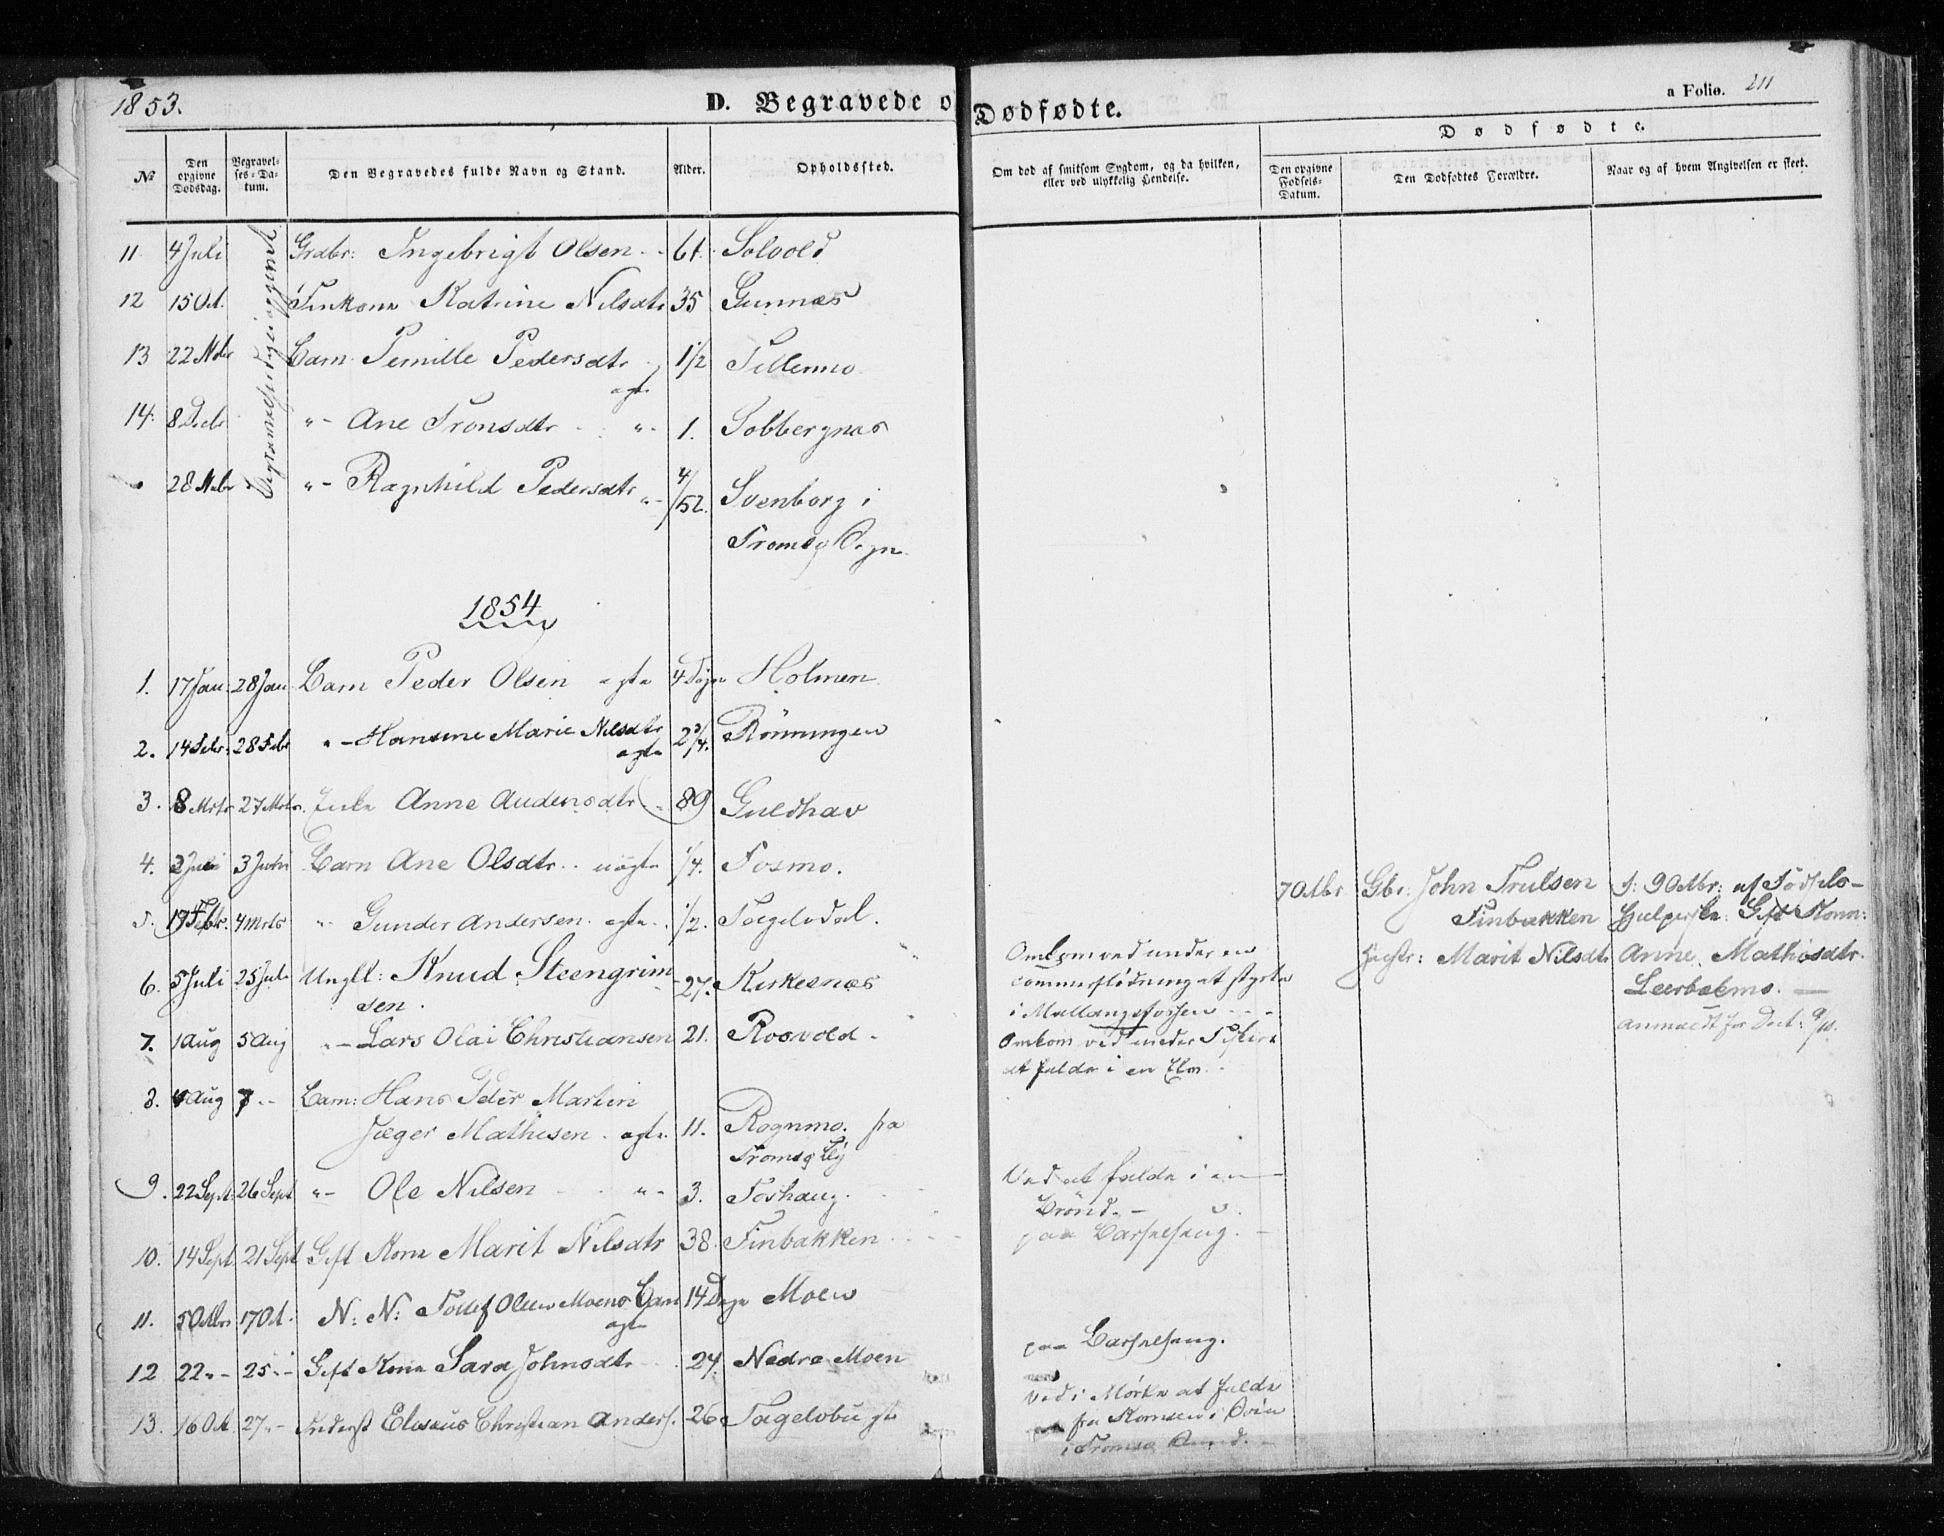 1853.
D. Begravede o
Dødfødte.
a Folio. 211
№
Den opgivne Dødsdag.
Begravelses-Datum.
Den Begravedes fulde Navn og Stand.
Alder.
Opholdssted.
Om død af smitsom Sygdom, og da hvilken, eller ved ulykkelig Hendelse.
Dødfødte.
Den opgivne Fødsels-Datum.
Den Dødfødtes Forældre.
Naar og af hvem Angivelsen er skeet.
11. 4 Juli Ingebrigt Olsen 61. Solvold
12 15 Oct. Katrine Nilsdtr 35 Gunnæs
13 22 Nbr Barn Pernille Pedersdtr ægte 1/2 Fillemo
14. 8 Decbr "- Ane Tronsdtr "- 1. Sobbergnæs
28 Nvbr "- Ragnhild Pedersdtr "- 4/52. Svenborg i
Tromsø Sogn
1854
1. 17 Jan: 28 Jan Barn Peder Olsen ægte 4 Døgn Holmen
2. 14 Febr: 28 Febr "- Hansine Marie Nilsdtr ægte 2 3/4. Rönningen
3. 8 Mrts 27 Mrts. Enke Anne Audensdtr 89 Guldhav
4. 3 Juni Barn Ane Olsdtr uægte 1/4. Fosmo.
5. 17 Febr. 4 Mrts "- Gunder Andersen ægte 1/2. Fagelidal.
6. 5 Juli 25 Juli Ungkl: Knud Steengrimsen. 27. Kirkesnæs
Omkom ved under en
Tommerflödning at styrte
i Mallangsfossen
7. 1 Aug 5 Aug "- Lars Olai Christiansen 21. Rosvold
Omkom ved under Fiskeri
at falde i en Elv.
8. 4 Aug 7 "- Barn: Hans Peder Martin
Jæger Mathisen. ægte. 11. Rognmo. fra
Tromsø By
9. 22 Sept: 26 Sept "- Ole Nilsen "- 3. Foshaug.
Ved at falde i en
Brönd.-
10. 14 Sept 21 Sept Gift Kone Marit Nilsdtr 38 Finbakken
paa Barselseng.
11. 5 Octbr 17 Oct. N: N: Tollef Olsen Moens Barn ægte 14 Dage Moen
12 22 "- 25 "- Gift Kone Sara Johnsdtr 24. Nedre Moen
paa Barselseng.
13. 16 Oct 27 "- Inderst Elisæus Christian Anders. 26 Fagelidbugt
Ved i Mørke at falde
fra Romsen i Søen
i Tromsø Sund.
7 Octbr Gbr: John Trulsen
Finbakken
Hustr: Marit Nilsdtr
d: 9 Octbr: af Födsels-
hjelperske Gift Kone:
Anne Mathisdtr.
Leerbækmo.
anmeldt for Dect: 9/10.